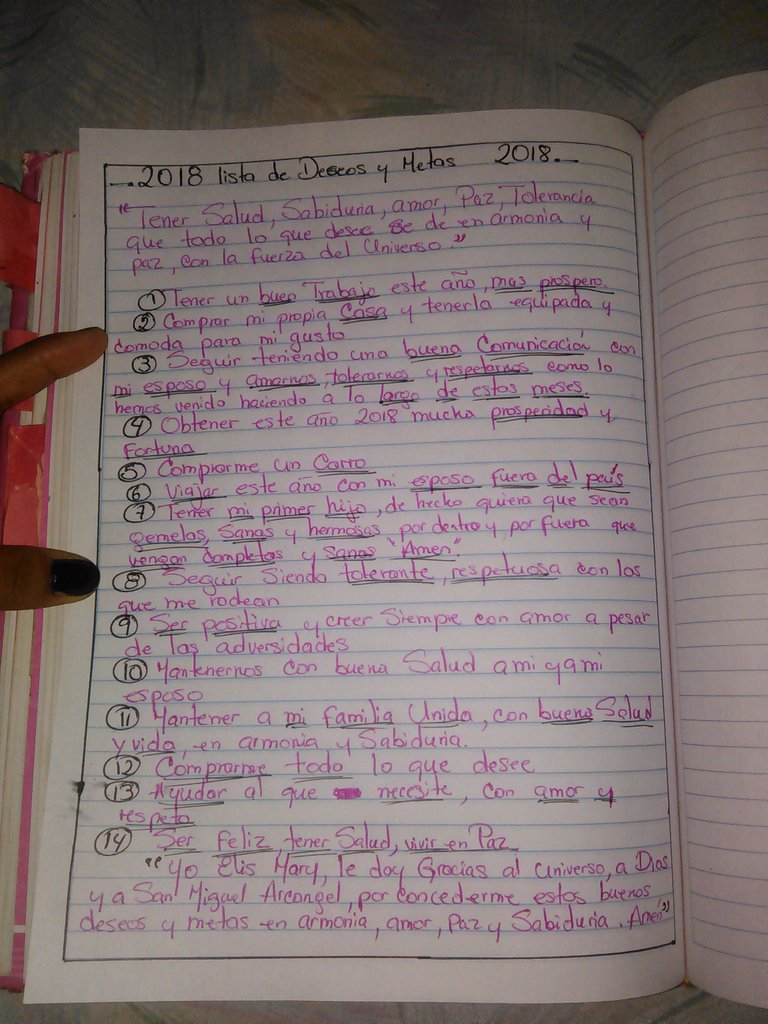 2018 lista de Deseos y Metas 2018.
"Tener Salud, Sabiduria, amor, Paz, Tolerancia
que todo lo que desee se de en armonia y
paz, con la fuerza del Universo."
① Tener un buen Trabajo este año, mas prospero.
② Comprar mi propia Casa y tenerla equipada y
comoda para mi gusto
③ Seguir teniendo una buena Comunicación con
mi esposo y amarnos, tolerarnos y respetarnos como lo
hemos venido haciendo a lo largo de estos meses.
④ Obtener este año 2018 mucha prosperidad y
Fortuna
⑤ Comprarme un Carro
⑥ Viajar este año con mi esposo fuera del país
⑦ Tener mi primer hijo, de hecho quiera que sean
gemelos, Sanas y hermosas por dentro y por fuera que
vengan completas y sanas "Amen".
⑧ Seguir Siendo tolerante, respetuosa con los
que me rodean
⑨ Ser positiva y creer Siempre con amor a pesar
de las adversidades
⑩ Mantenernos con buena Salud a mi y a mi
esposo
⑪ Mantener a mi familia Unida, con buena Salud
y vida, en armonia y Sabiduria.
⑫ Comprarme todo lo que desee
⑬ Ayudar al que necesite, con amor y
respeto
⑭ Ser feliz, tener Salud, vivir en Paz
"Yo Elis Mary, le doy Gracias al Universo, a Dios
y a San Miguel Arcangel, por concederme estos buenos
deseos y metas en armonia, amor, Paz y Sabiduria, Amén"